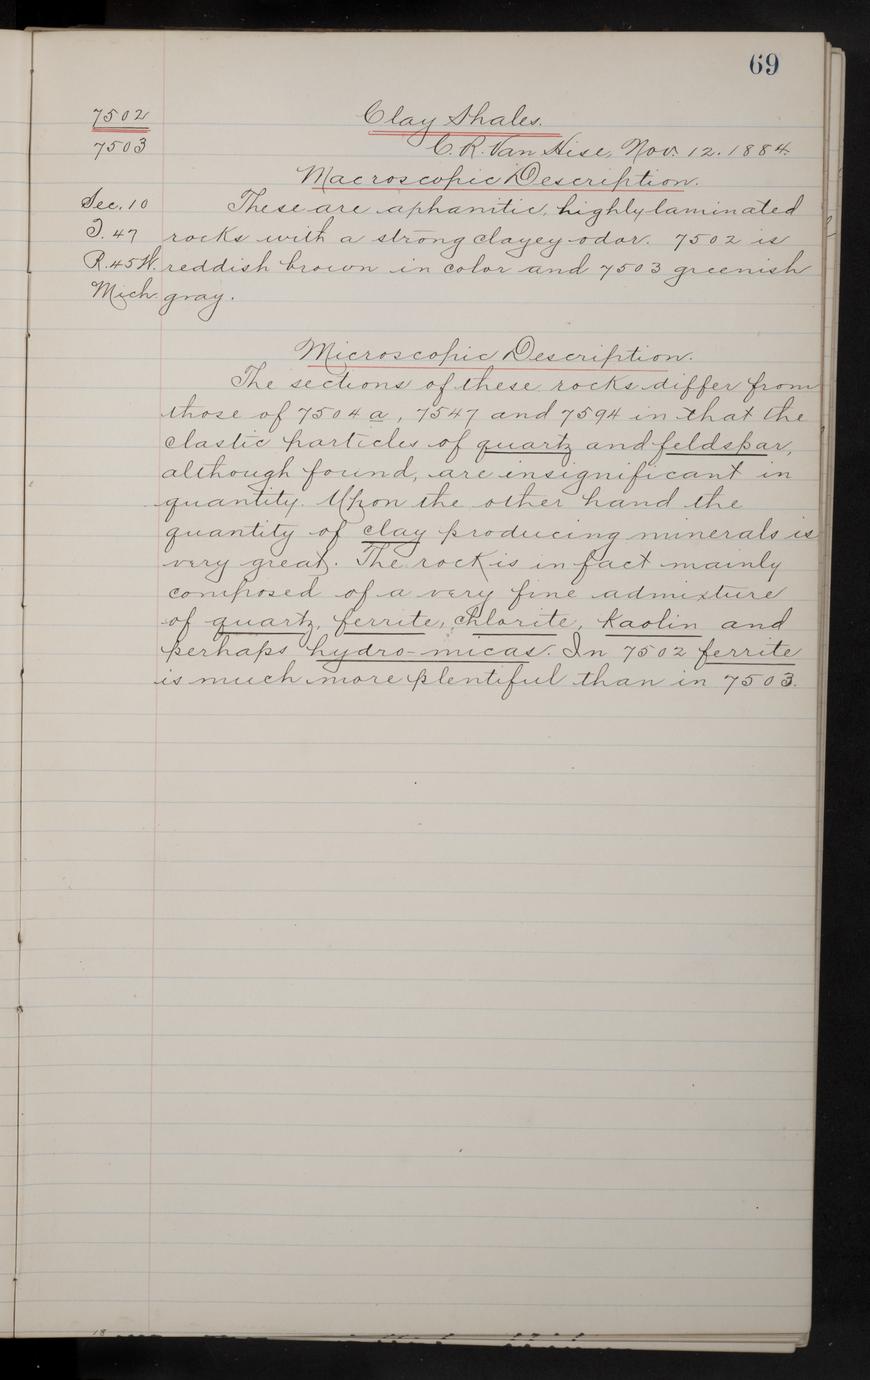 69
7502 Clay Shales.
7503 C. R. Van Hise, Nov. 12. 1884.
Macroscopic Description.
Sec. 10 These are aphanitic, highly laminated
T. 47 rocks with a strong clayey odor. 7502 is
R. 45 W. reddish brown in color and 7503 greenish
Mich. gray.
Microscopic Description.
The sections of these rocks differ from
those of 7504 a, 7547 and 7594 in that the
clastic particles of quartz and feldspar,
although found, are insignificant in
quantity. Upon the other hand the
quantity of clay producing minerals is
very great. The rock is in fact mainly
composed of a very fine admixture
of quartz, ferrite, chlorite, kaolin and
perhaps hydro-micas. In 7502 ferrite
is much more plentiful than in 7503.
18